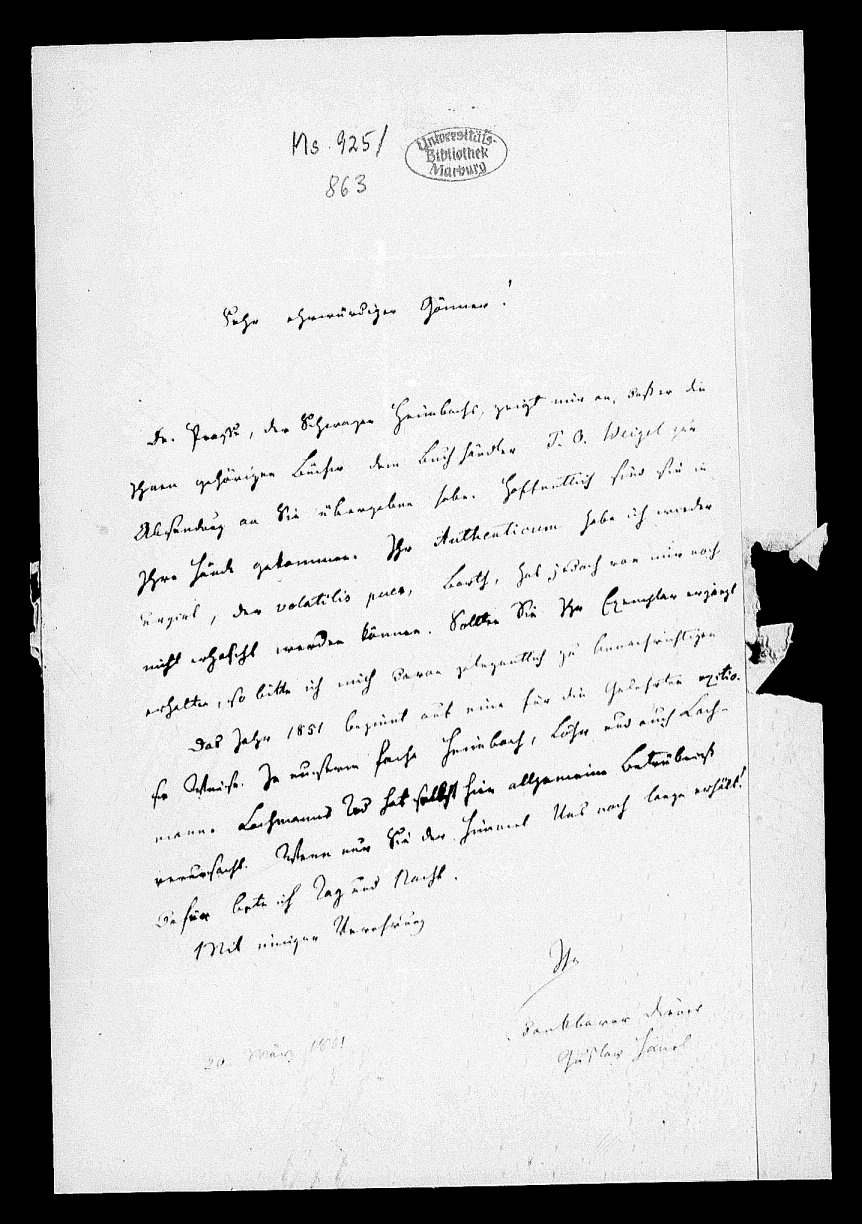 Ms. 925/
863
Universitäts-
Bibliothek
Marburg
Sehr ehrwürdiger Gönner!
Dr. , der Schwager Heimbachs, zeigt mir an, daß er die
Ihnen gehörigen Bücher dem Buchhändler T. O. Weigel zur
Absendung an Sie übergeben habe. Hoffentlich sind sie in
Ihre Hände gekommen. Ihr Authenticum habe ich wieder
, der volatilis puer, Barth, hat jedoch von mir noch
nicht erhascht werden können. Sollten Sie Ihr Exemplar ergänzt
erhalten, so bitte ich mich davon gelegentlich zu benachrichtigen
Das Jahr 1851 beginnt auf eine für die Gelehrten exitio-
se Weise. In unserm Fache Heimbach, Löhr und auch Lach-
mann. Lachmanns Tod hat selbst hier allgemeine Betrübniß
verursacht. Wenn nur Sie der Himmel Uns noch lange erhält!
Dafür bete ich Tag und Nacht.
Mit inniger Verehrung
Ihr
dankbarer Diener
Gustav Hänel
20. März 1851